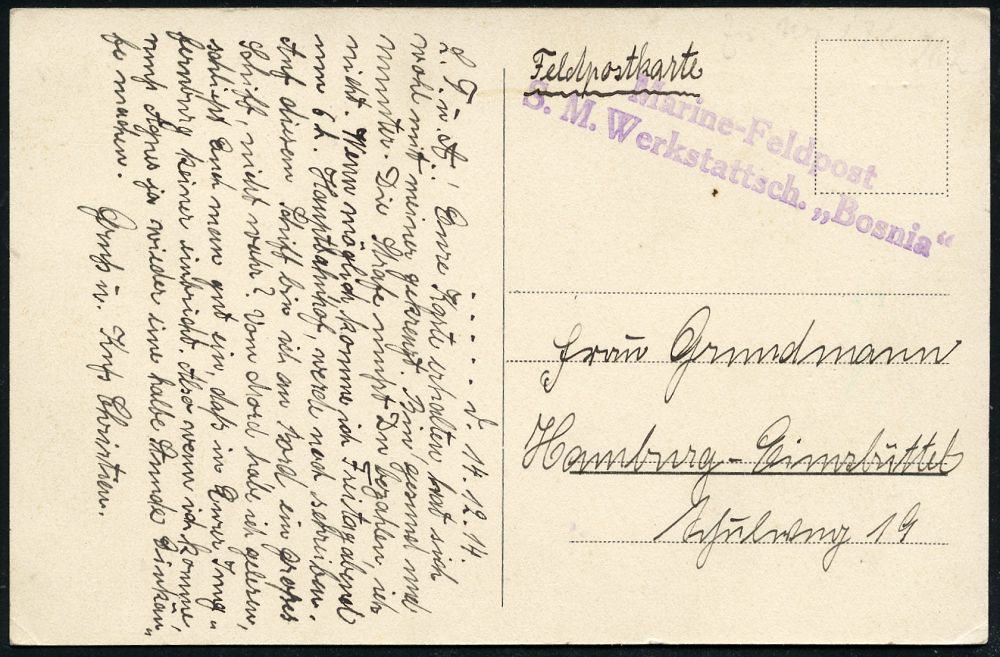 Feldpostkarte
Marine-Feldpost
S. M. Werkstattsch. „Bosnia“
Frau Grundmann
Hamburg-Eimsbüttel
Schulweg 19
. . . . . d. 14.12.14.
L. T. u. A.! Eure Karte erhalten hat sich
wohl mit meiner gekreuzt. Bin gesund und
munter. Die Strafe mußt Du bezahlen, ich
nicht. Wenn möglich, komme ich Freitagabend
um 6 h. Hauptbahnhof, werde noch schreiben.
Auf diesem Schiff bin ich an Bord ein großes
Schiff, nicht wahr? Vom Mord habe ich gelesen,
schließt Euch man gut ein, daß in Eurer Jung-
fernburg keiner einbricht. Also wenn ich komme,
muß Agnes ja wieder eine halbe Stunde Einkäu-
fe machen.
Gruß u. Kuß Christian.